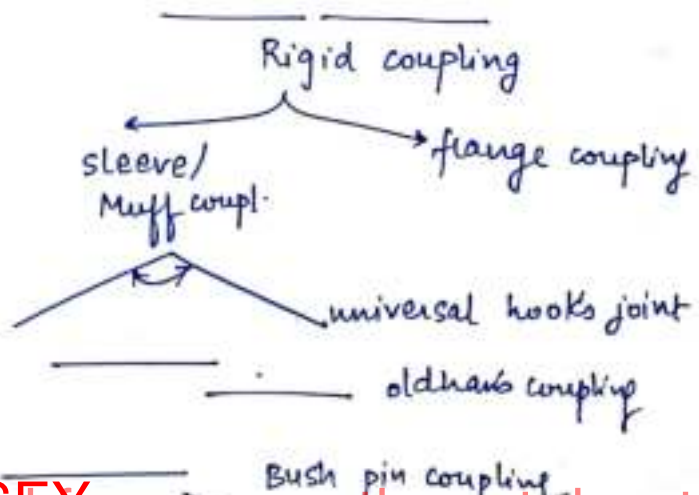 Rigid coupling
sleeve/
Muff coupl.
flange coupling
universal hooks joint
oldham's coupling
Bush pin coupling